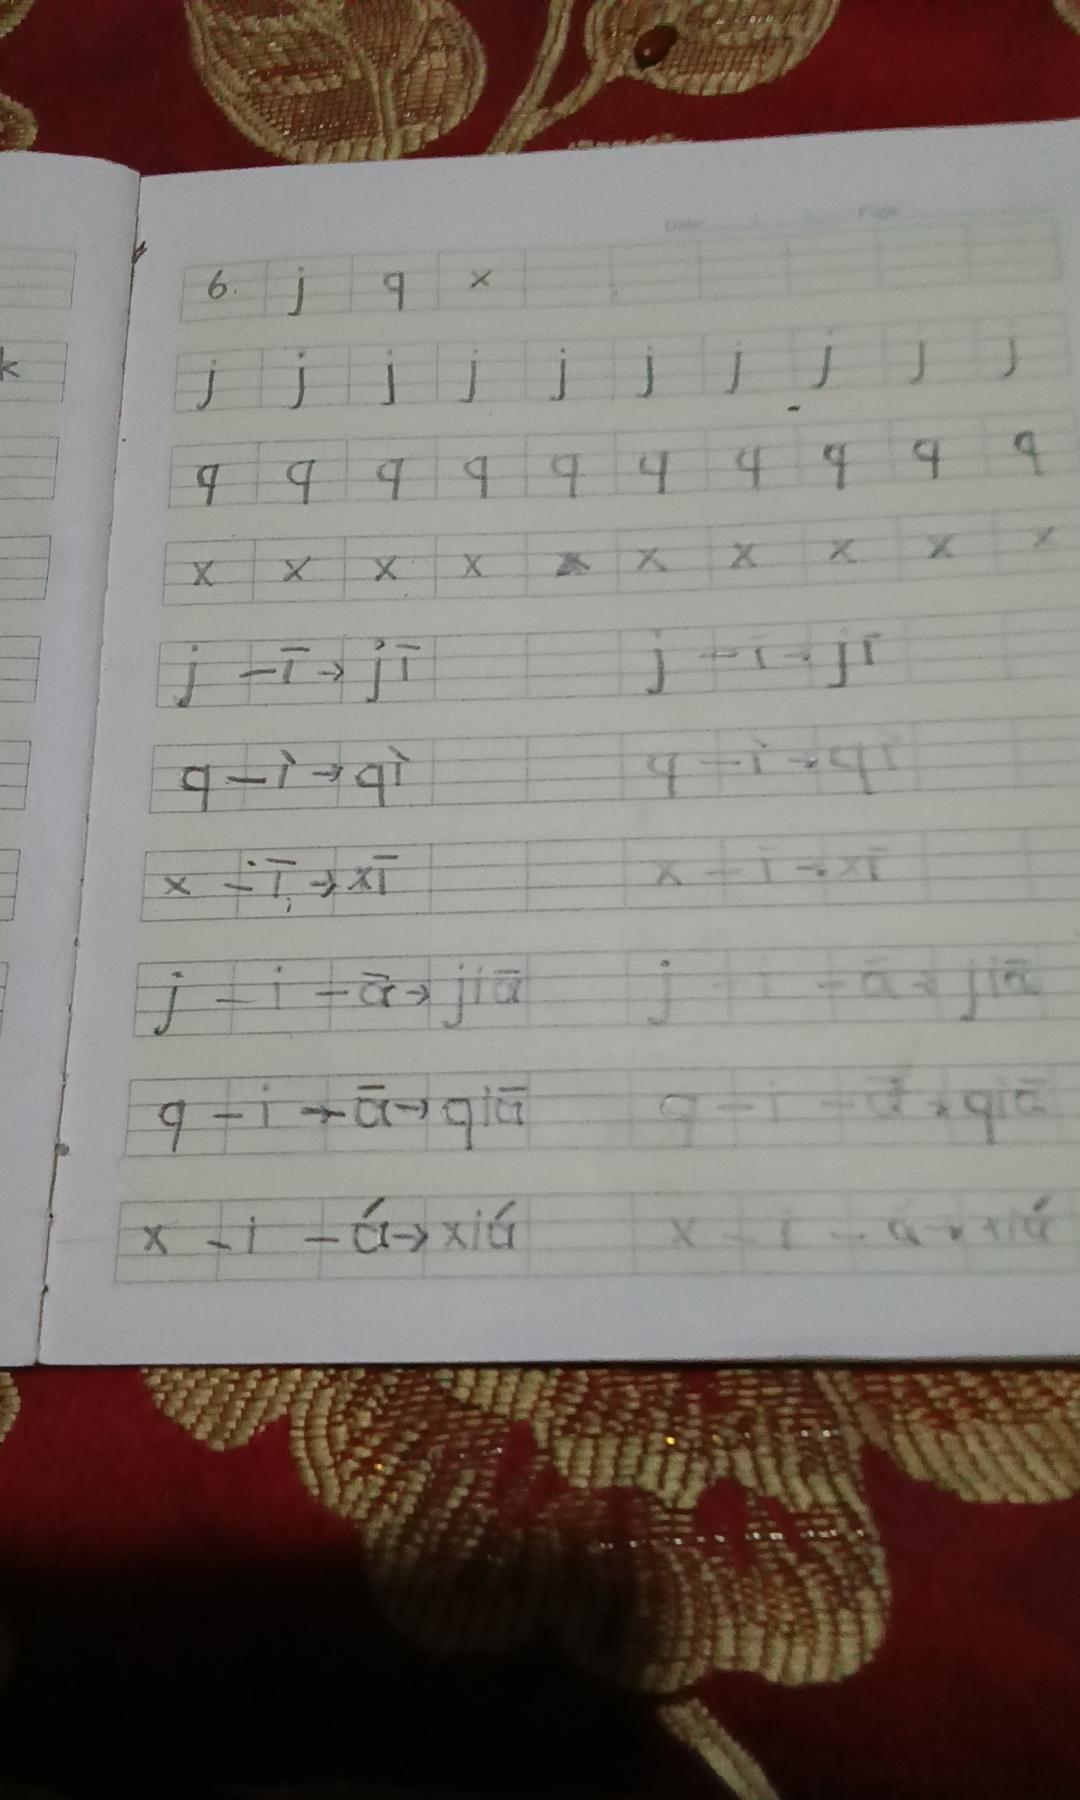 Date Page
6. j q x
k
j j j j j j j j j j
q q q q q q q q q q
x x x x x x x x x x
j – ī → jī j – ī → jī
q – ì → qì q – ì → qì
x – ī → xī x – ī → xī
j – i – ā → jiā j – i – ā → jiā
q – i → ā → qiā q – i – ā → qiā
x – i – á → xiá x – i – á → xiá